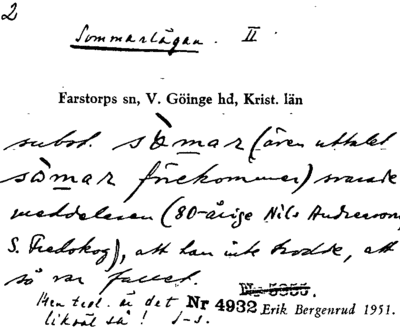 2
Sommarlågan. II
Farstorps sn, V. Göinge hd, Krist. län
subst. sòmar (även uttalet
sòmar förekommer) svarade
meddelaren (80-årige Nils Andersson,
S. Fedskog), att han inte trodde, att
så var fallet.
Men teol. är det Nr 4932 Erik Bergenrud 1951.
likväl så! J-s.